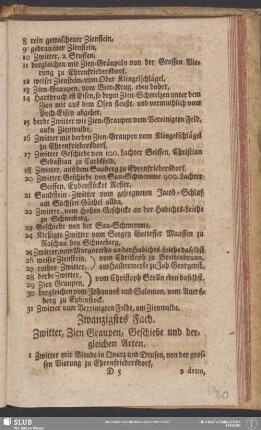 8 rein gewaschener Zienstein,
9 gebrannter Zienstein,
10 Zwitter, 2. Stuffen,
11 dergleichen mit Zien-Gräupeln von der Grossen Vierung zu Ehrenfriedersdorf,
12 weiser Zienstein, vom Ober Klingelschlägel,
13 Zien-Graupen, vom Bier-Krug, eben daher,
14 Hartbruch ist Eisen, so beym Zien-Schmeltzen unter dem
Zien mit aus dem Ofen fleußt, und vermuthlich vom
Poch-Eisen abgehet.
15 derbe Zwitter wie Zien-Graupen vom Vereinigten Feld,
aufn Zienwalde,
16 Zwitter mit derben Zien-Graupen vom Klingelschlägel
zu Ehrenfriedersdorf,
17 Zwitter Geschiebe von 100. Lachter Seiffen, Christian
Sebastian zu Carlsfeld,
18 Zwitter, aus dem Sauberg zu Ehrenfriedersdorf,
20 Zwitter Geschiebe von Sau-Schwemme 1900. Lachter
Seiffen, Eybenstöcker Refier,
21 Sandstein-Zwitter vom gesegneten Jacob-Schlaf,
am Sächsen Güthel allda,
22 Zwitter, vom Hohen Geschiebe an der Habichts-Leithe
zu Schneeberg,
23 Geschiebe von der Sau-Schwemme,
24 Kießigte Zwitter vom Segen Gottes Maassen zu
Raschau bey Schneeberg,
25 Zwitter, vom Margaretha an der Habichts-Leithe daselbst
26 weiser Zienstein, vom Christoph zu Breitenbrunn,
27 rother Zwitter, am Fastenwerke zu Joh Georgenst.
28 derbe Zwitter,
29 Zien Graupen, vom Christoph Stolln eben daselbst,
30 dergleichen vom Johannes und Salomon, vom Auersberg zu Eybenstock.
31 Zwitter vom Vereinigten Felde, am Zienwalde.
Zwanzigstes Fach.
Zwitter, Zien Graupen, Geschiebe und dergleichen Arten.
1 Zwitter mit Blende in Quarz und Drusen, von der grossen Vierung zu Ehrenfriedersdorf,
D 5
2 detto,
SLUB